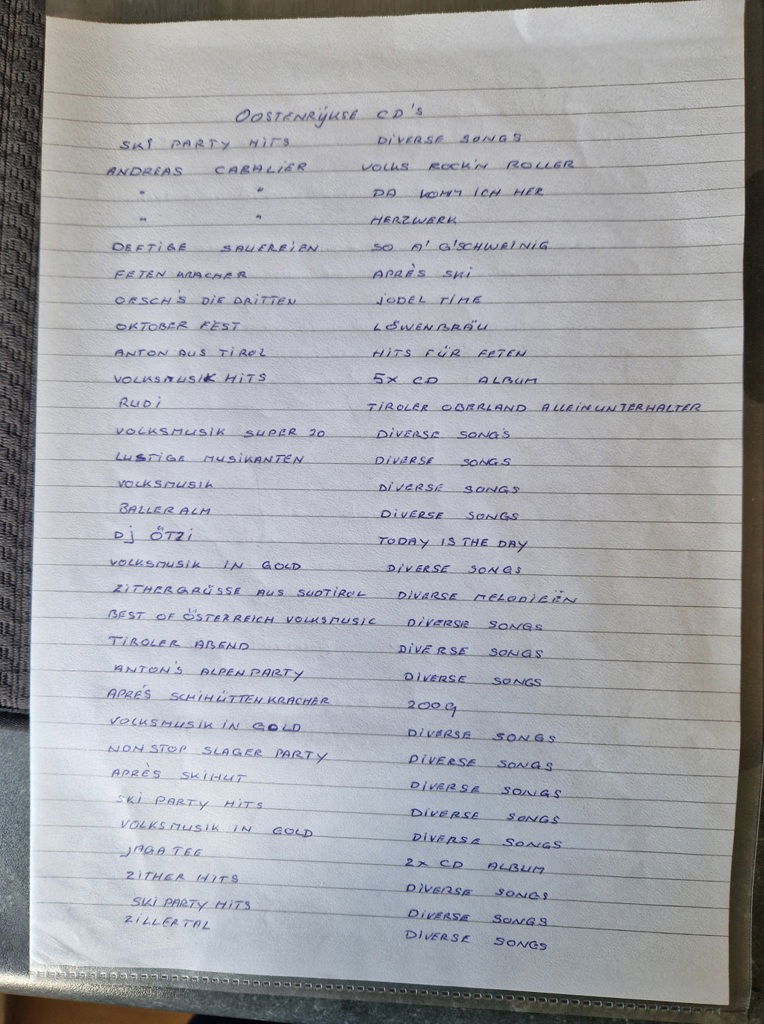 OOSTENRIJKSE CD'S
SKI PARTY HITS DIVERSE SONGS
ANDREAS CABALIER VOLKS ROCK'N ROLLER
" " DA KOMM ICH HER
" " HERZWERK
DEFTIGE SAUEREIEN SO A' G'SCHWEINIG
FETEN KRACHER APRÈS SKI
OESCH'S DIE DRITTEN JODEL TIME
OKTOBER FEST LÖWENBRÄU
ANTON AUS TIROL HITS FÜR FETEN
VOLKSMUSIK HITS 5x CD ALBUM
RUDI TIROLER OBERLAND ALLEINUNTERHALTER
VOLKSMUSIK SUPER 20 DIVERSE SONGS
LUSTIGE MUSIKANTEN DIVERSE SONGS
VOLKSMUSIK DIVERSE SONGS
BALLERALM DIVERSE SONGS
DJ ÖTZI TODAY IS THE DAY
VOLKSMUSIK IN GOLD DIVERSE SONGS
ZITHERGRÜSSE AUS SUDTIROL DIVERSE MELODIEËN
BEST OF ÖSTERREICH VOLKSMUSIC DIVERSE SONGS
TIROLER ABEND DIVERSE SONGS
ANTON'S ALPENPARTY DIVERSE SONGS
APRÈS SCHIHÜTTENKRACHER 2009
VOLKSMUSIK IN GOLD DIVERSE SONGS
NONSTOP SLAGER PARTY DIVERSE SONGS
APRÈS SKIHUT DIVERSE SONGS
SKI PARTY HITS DIVERSE SONGS
VOLKSMUSIK IN GOLD DIVERSE SONGS
JAGATEE 2x CD ALBUM
ZITHER HITS DIVERSE SONGS
SKI PARTY HITS DIVERSE SONGS
ZILLERTAL DIVERSE SONGS